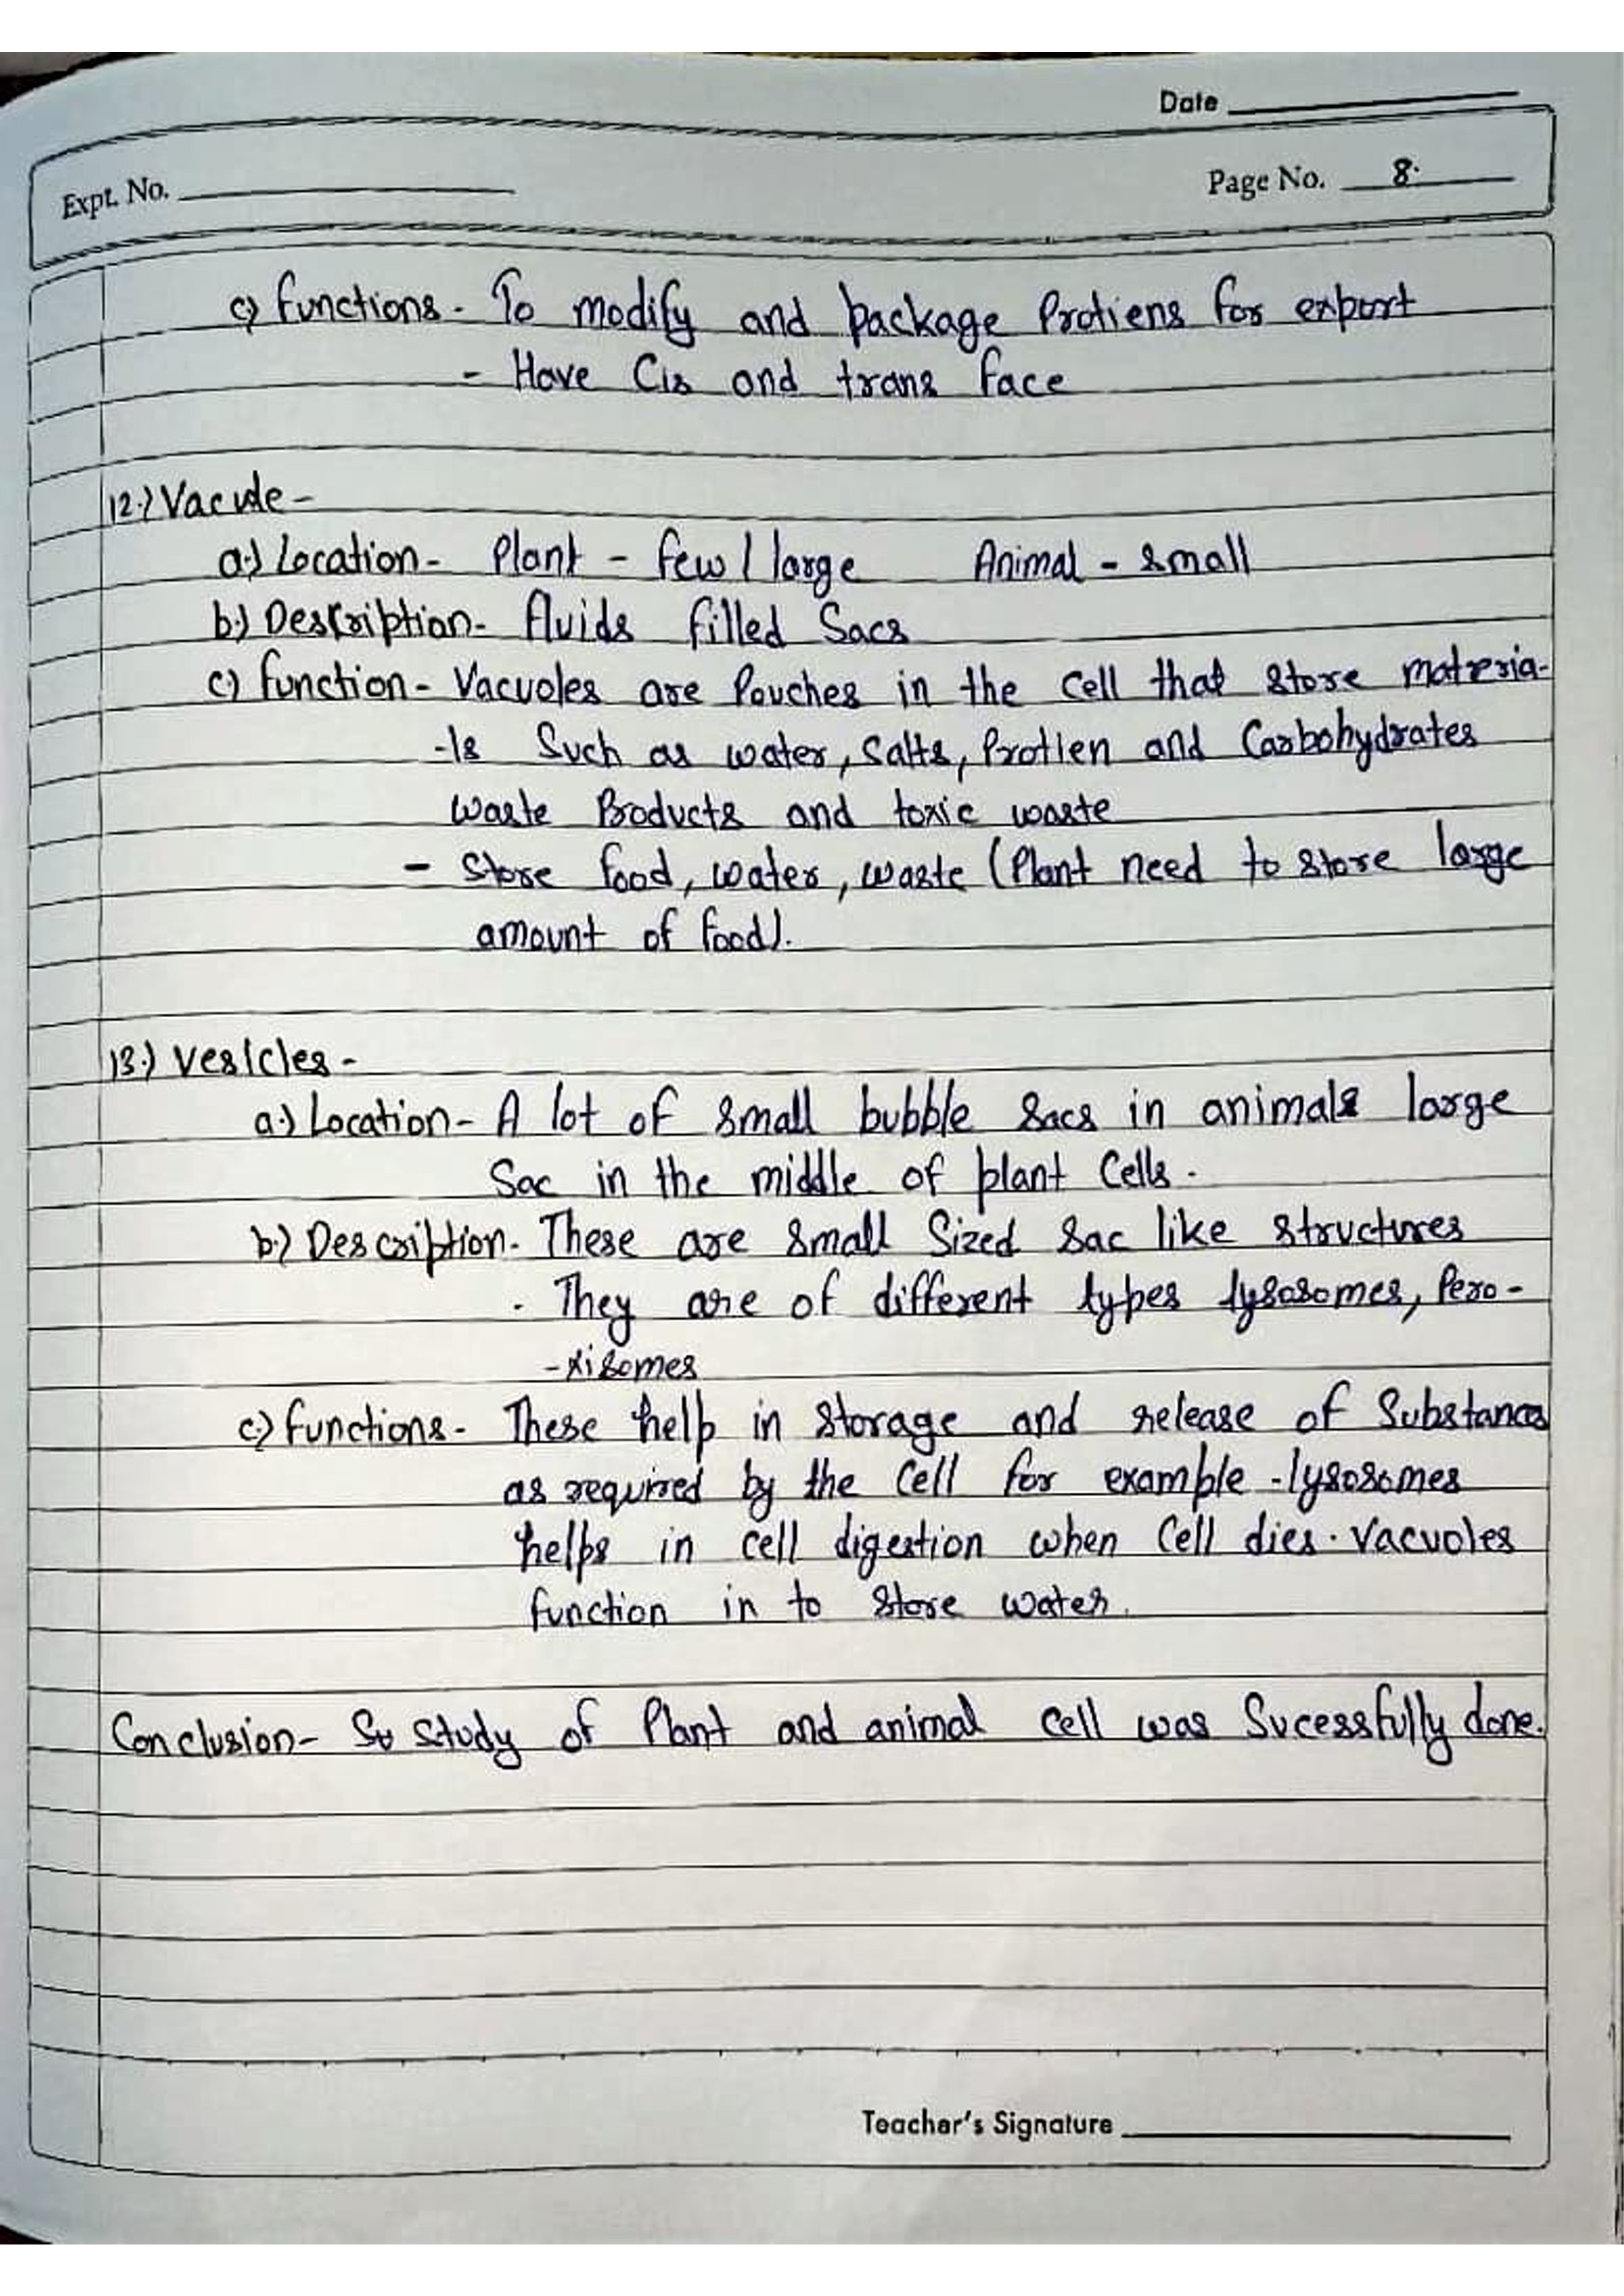 Date
Expt. No.
Page No. 8.
c) functions - To modify and package Protiens for export
- Have Cis and trans face
12.) Vacule -
a.) Location - Plant - few / large Animal - small
b.) Description - fluids filled Sacs
c) function - Vacuoles are Pouches in the cell that store materia-
-ls Such as water, Salts, Protien and Carbohydrates
waste Products and toxic waste
- Store food, water, waste (Plant need to store large
amount of food).
13.) Vesicles -
a.) Location - A lot of small bubble sacs in animals large
Sac in the middle of plant Cells.
b.) Description - These are small Sized sac like structures
. They are of different types lysosomes, Pero-
-xisomes
c.) functions - These help in storage and release of Substances
as required by the cell for example - lysosomes
helps in cell digestion when Cell dies. Vacuoles
function in to store water.
Conclusion - So Study of Plant and animal cell was Sucessfully done.
Teacher's Signature